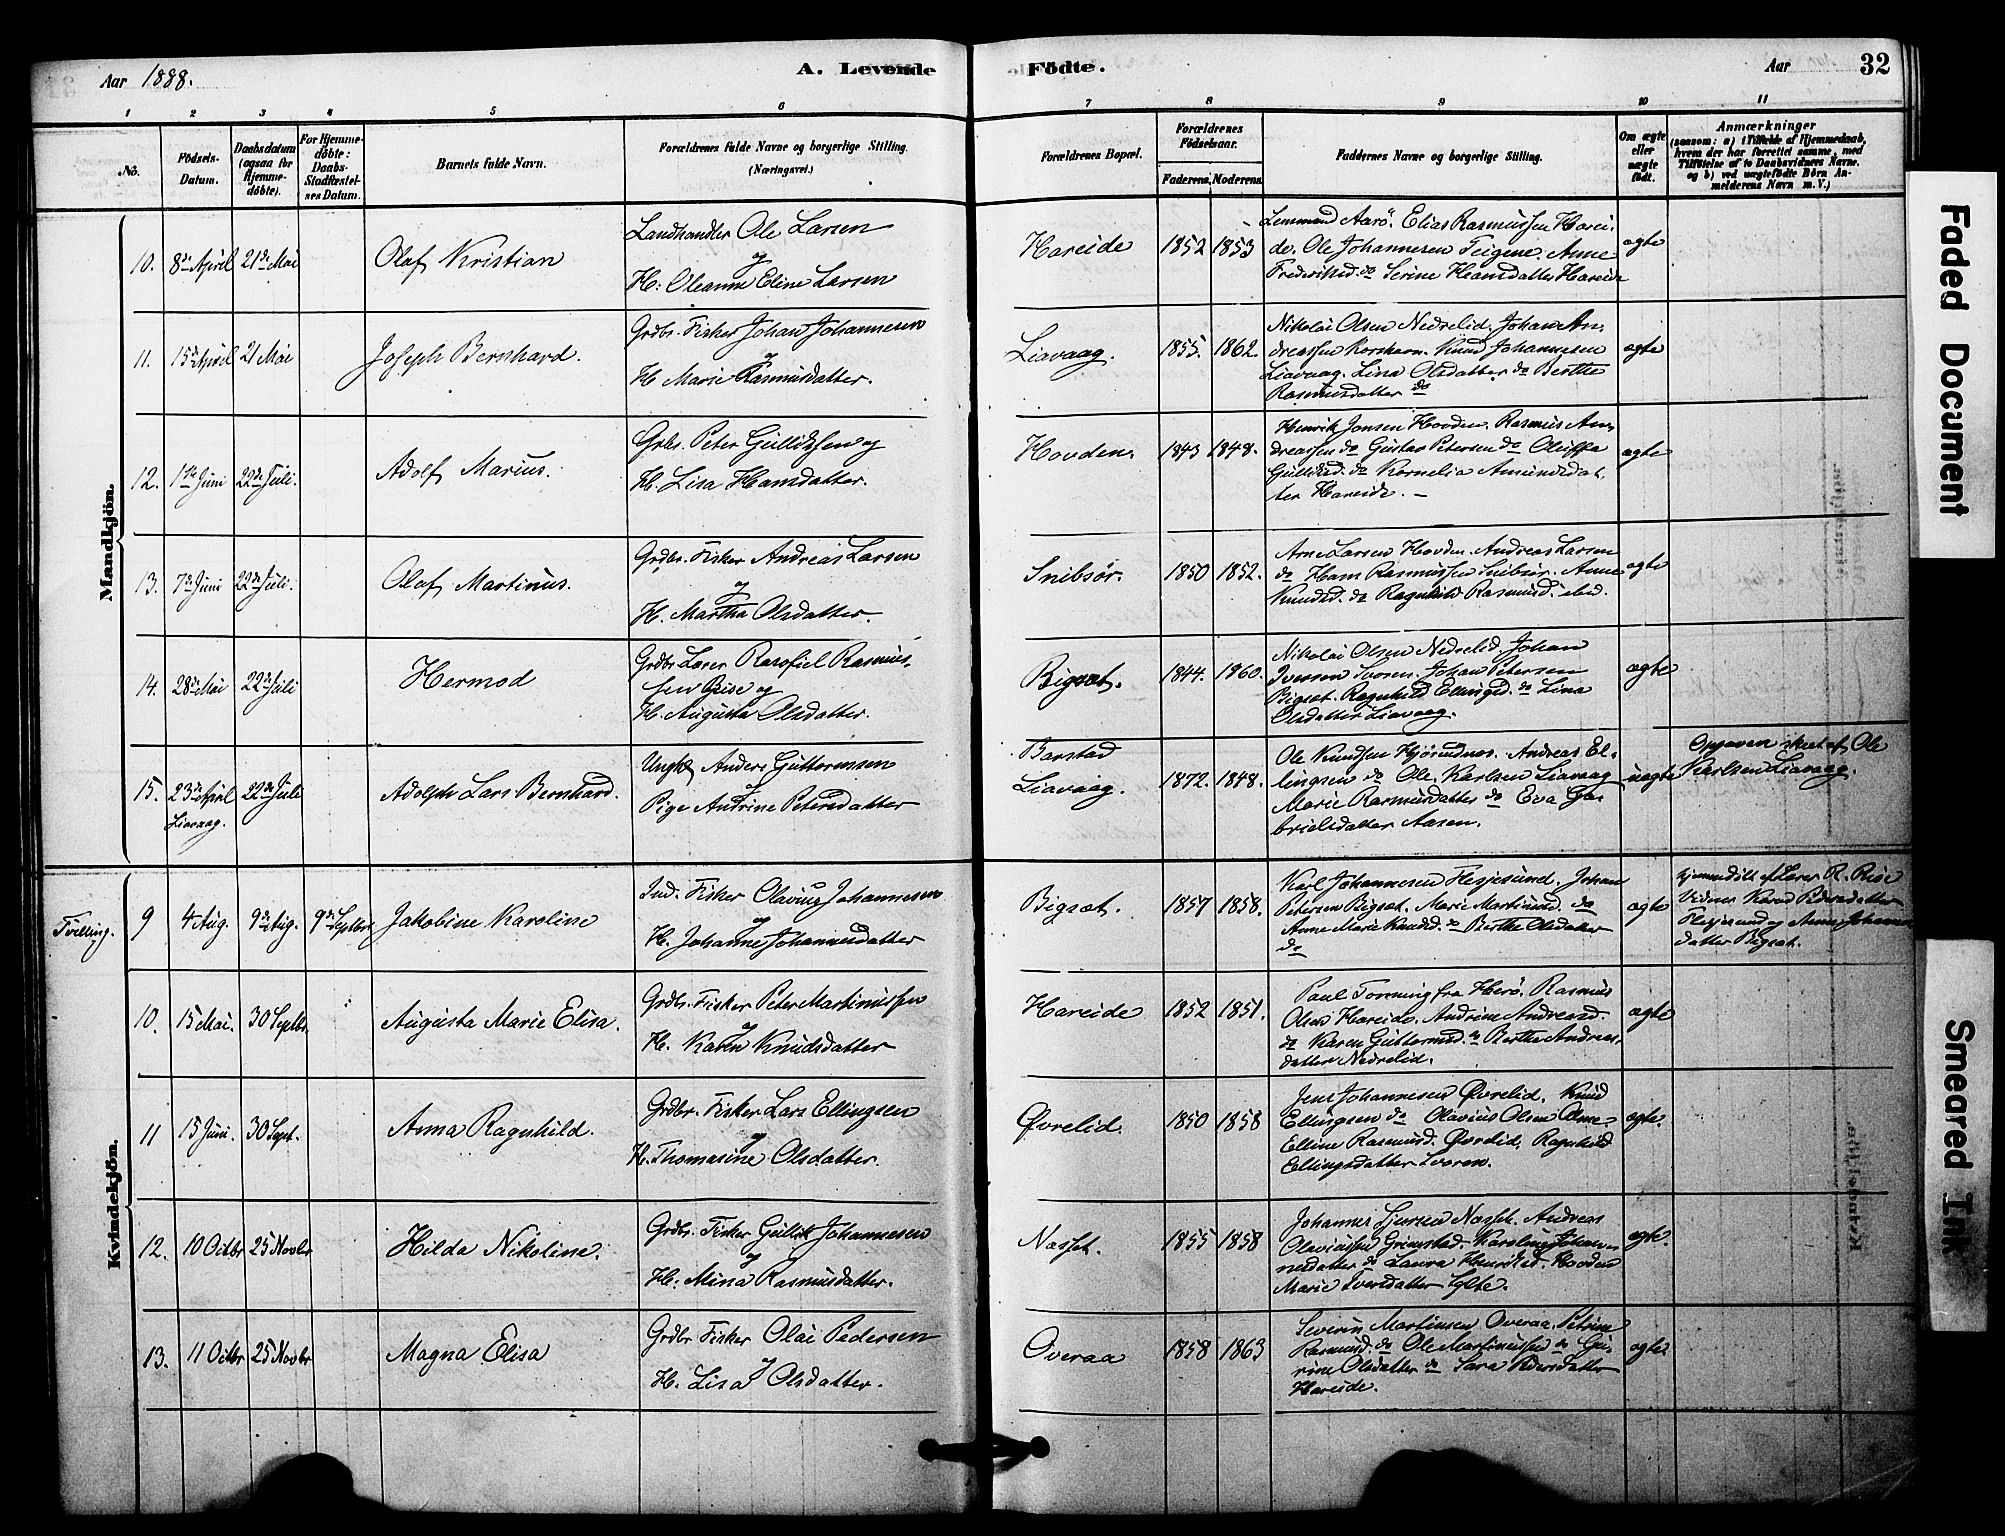 Aar 1888.
A. Levende Födte.
Aar
32
1 2 3 4 5 6 7 8 9 10 11
No.
Födsels-Datum.
Daabsdatum (ogsaa for Hjemme-döbte).
For Hjemme-döbte: Daabs-Stadfæstel-ses Datum.
Barnets fulde Navn.
Forældrenes fulde Navne og borgerlige Stilling.
(Næringsvei.)
Forældrenes Bopæl.
Forældrenes Födselsaar.
Faderens. Moderens.
Faddernes Navne og borgerlige Stilling.
Om ægte eller uægte født.
Anmærkninger
(saasom: a) i Tilfælde af Hjemmedaab,
hvem der har forrettet samme, med
Tilföielse af to Daabsvidners Navne.
og b) ved uægtefödte Börn An-
melderens Navn m. V.)
Mandkjön.
10. 8de April 21de Mai
Olaf Kristian
Landhandler Ole Larsen
og
H: Oleanne Eline Larsen
Hareide
1852 1853
Aarö. Elias Rasmussen Harei-
de. Ole Johannesen Teigene. Anne
Frederiksd. do Serine Hansdatter Hareide
ægte
11. 15de April 21 Mai
Joseph Bernhard.
Grdbr. Fisker Johan Johannesen
og
H. Marie Rasmusdatter.
Liavaag.
1855. 1862.
Nikolai Olsen Nedrelid. Johan An-
dreassen Korshavn. Knud Johannesen
Liavaag. Lina Olsdatter do Berthe
Rasmusdatter do
ægte
12. 1ste Juni 22de Juli.
Adolf Marius.
Grbr. Peter Gulliksen og
H. Lisa Hansdatter.
Hovden.
1843 1848.
Henrik Jonsen Hovden. Rasmus An-
dreassen do Gustav Petersen do Oluffa
Gulliksd. do Kornelia Amundsdat-
ter Hareide. –
ægte
13. 7de Juni 22de Juli.
Olaf Martinus.
Grdbr. Fisker Andreas Larsen
og
H. Martha Olsdatter.
Snibsör.
1850 1852.
Arne Larsen Hovden. Andreas Larsen
do Hans Rasmussen Snibsör. Anne
Knudsd. do Ragnhild Rasmusd. ibid.
ægte
14. 28de Mai 22de Juli
Hermod
Grdbr Lærer Rasmus-
sen Riise og
H. Augusta Olsdatter.
Bigsæt.
1844. 1860.
Nikolai Olsen Nedrelid Johan
Iversen Svoren. Johan Petersen
Bigsæt. Ragnhild Ellingsd. do Lina
Olsdatter Liavaag.
ægte
15. 23de April 22de Juli
Liavaag.
Adolph Lars Bernhard.
Ungk. Anders Guttormsen
og
Pige Andrine Petersdatter
Barstad
Liavaag.
1872. 1848.
Ole Knudsen Hjörundnes. Andreas El-
lingsen do Ole Karlsen Liavaag
Marie Rasmusdatter do Eva Ga-
brielsdatter Aasen.
uægte
Opgaven skeet af Ole
Karlsen Liavaag.
Kvindekjön.
Tvilling.
9 4 Aug. 9de Aug. 9de Septbr
Jakobine Karoline
Ind. Fisker Olavus Johannesen
og
H. Johanne Johannesdatter
Bigsæt.
1857 1858.
Karl Johannesen Hesjesund. Johan
Petersen Bigsæt. Marie Martinusd. do
Anne Marie Knudsd. do Berthe Olsdatter
do
ægte
hjemmedöbt af Lærer R. Riise
Vidner Karen Pedersdatter
Hesjesund og Anne Johannes
datter Bigsæt.
10. 15 Mai. 30 Septbr.
Augusta Marie Elisa.
Grdbr. Fisker Peter Martinussen
og
H. Karen Knudsdatter
Hareide
1852 1851.
Paul Torning fra Herö. Rasmus
Olsen Hareide. Andrine Andreasd.
do Karen Guttormsd. do Berthe Andreas-
datter Nedrelid.
ægte
11 15 Juni. 30 Sept.
Anna Ragnhild.
Grdbr. Fisker Lars Ellingsen
og
H. Thomasine Olsdatter.
Øvrelid.
1850 1858
Jens Johannesen Øvrelid. Knud
Ellingsen do Olavius Olsen Alme.
Elline Rasmusd. Øvrelid. Ragnhild
Ellingsdatter Svoren.
ægte.
12. 10 Octbr 25 Novbr
Hilda Nikoline.
Grdbr. Fisker Gullik Johannesen
og
H. Mina Rasmusdatter.
Næsset.
1855 1858
Johannes Sjursen Næsset. Andreas
Olaviussen Grimstad. Karoline Johan-
nesdatter do Laura Henriksd. Hovden
Marie Iversdatter Ytte.
ægte.
13. 11 Octbr 25 Novbr
Magna Elisa
Grdbr Fisker Olai Pedersen
og
H. Lisa Olsdatter.
Overaa
1858 1863
Severin Martinsen Overaa. Petrine
Rasmusd. do Ole Martinussen do Gu-
rine Olsdatter do Sara Pedersdatter
Hareide.
ægte
Faded Document
Smeared Ink